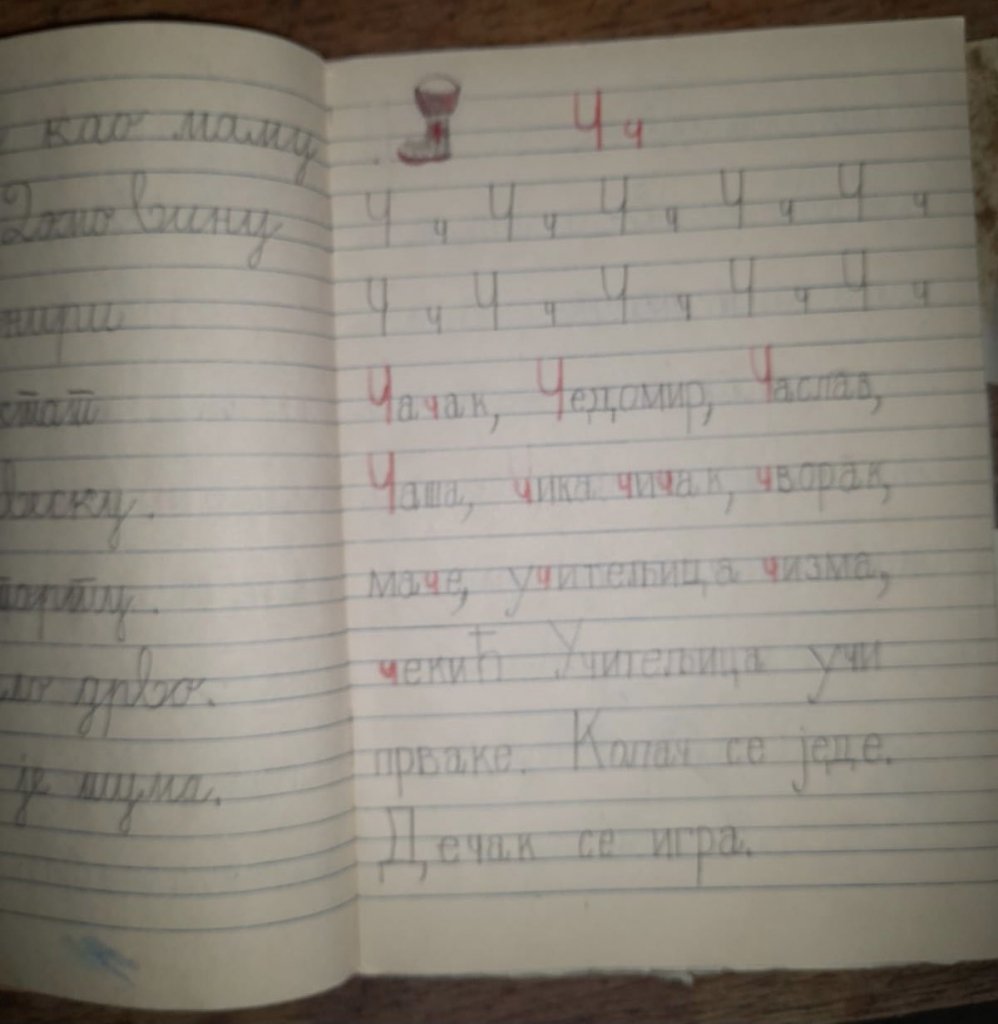 као маму
вину
шуми.
дрво.
је шума.
Ч ч
Ч ч Ч ч Ч ч Ч ч Ч ч
Ч ч Ч ч Ч ч Ч ч Ч ч
Чачак, Чедомир, Часлав,
Чаша, чика чичак, чворак,
маче, учитељица чизма,
чекић Учитељица учи
прваке. Колач се једе.
Дечак се игра.